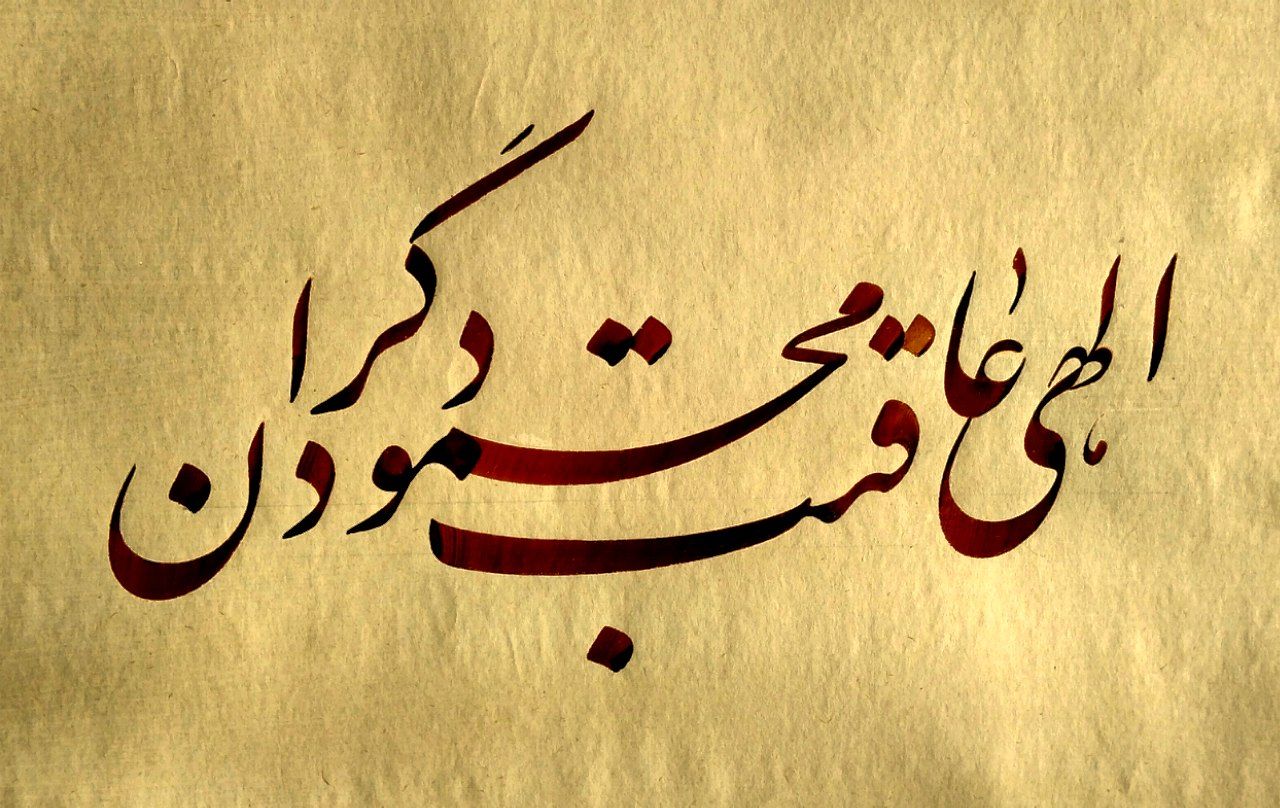 الهی عاقبت محمود گردان